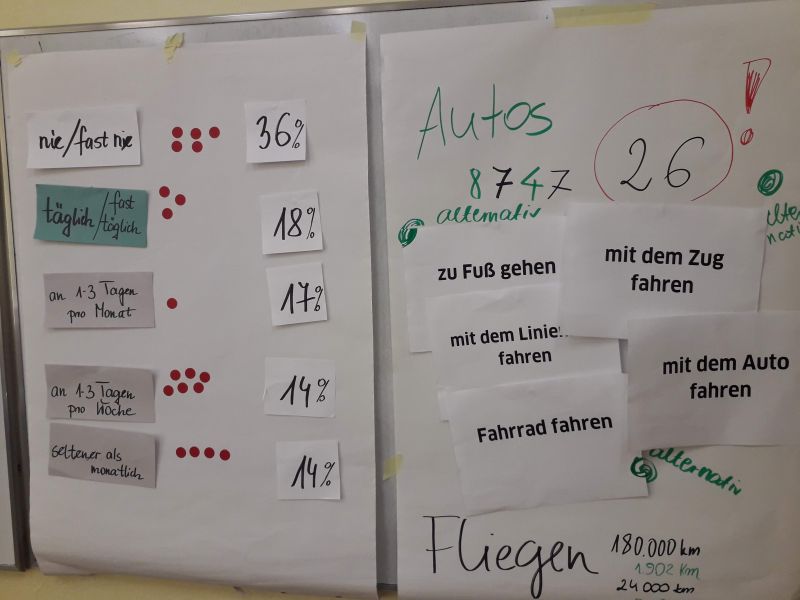 nie/fast nie
36%
täglich/fast täglich
18%
an 1-3 Tagen
pro Monat
17%
an 1-3 Tagen
pro Woche
14%
seltener als
monatlich
14%
Autos
8747
26
!
alternativ
zu Fuß gehen
mit dem Zug
fahren
mit dem
fahren
mit dem Auto
fahren
Fahrrad fahren
alternativ
Fliegen
180.000 km
1.902 km
24 000 km